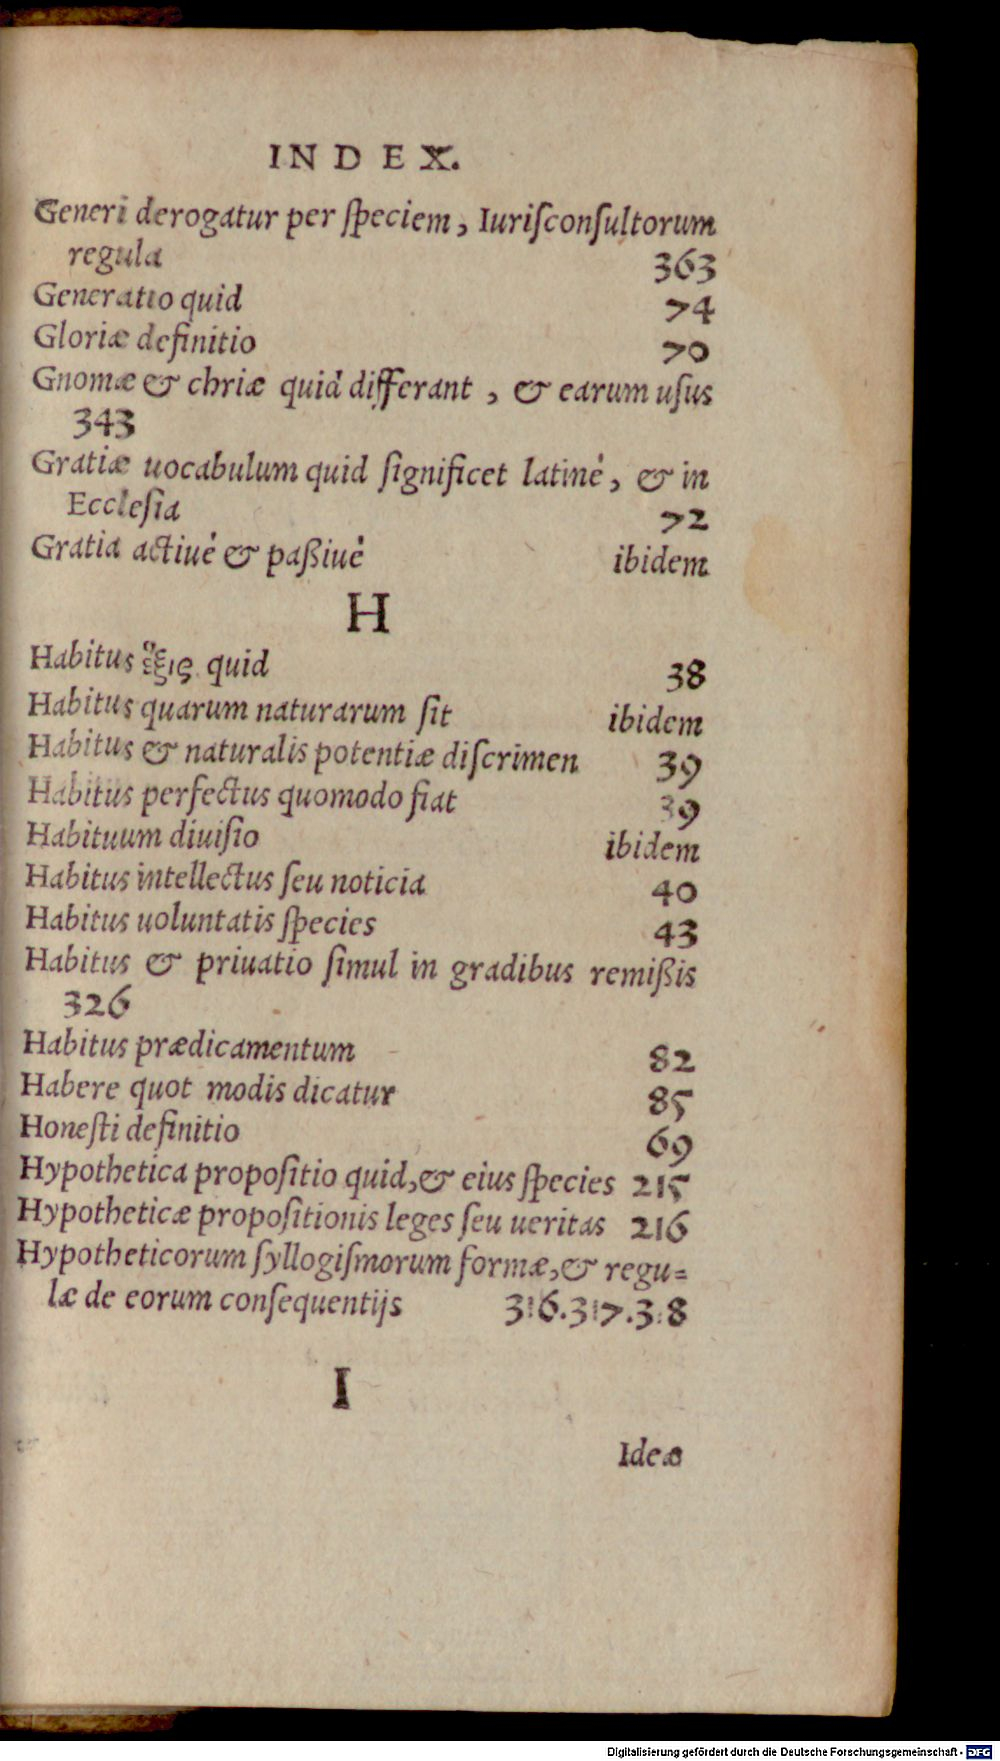 INDEX.
Generi derogatur per ſpeciem, Iuriſconſultorum
regula 363
Generatio quid 74
Gloriæ definitio 70
Gnomæ & chriæ quid differant, & earum uſus
343
Gratiæ uocabulum quid ſignificet latinè, & in
Eccleſia 72
Gratia actiuè & paßiuè ibidem
H
Habitus ἕξις quid 38
Habitus quarum naturarum ſit ibidem
Habitus & naturalis potentiæ diſcrimen 39
Habitus perfectus quomodo fiat 39
Habituum diuiſio ibidem
Habitus intellectus ſeu noticia 40
Habitus uoluntatis ſpecies 43
Habitus & priuatio ſimul in gradibus remißis
326
Habitus prædicamentum 82
Habere quot modis dicatur 85
Honeſti definitio 69
Hypothetica propoſitio quid, & eius ſpecies 215
Hypotheticæ propoſitionis leges ſeu ueritas 216
Hypotheticorum ſyllogiſmorum formæ, & regu=
læ de eorum conſequentijs 316.317.318
I
Ideæ
Digitalisierung gefördert durch die Deutsche Forschungsgemeinschaft - DFG